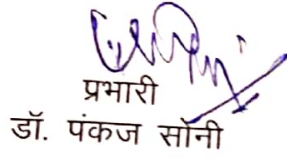 प्रभारी
डॉ. पंकज सोनी